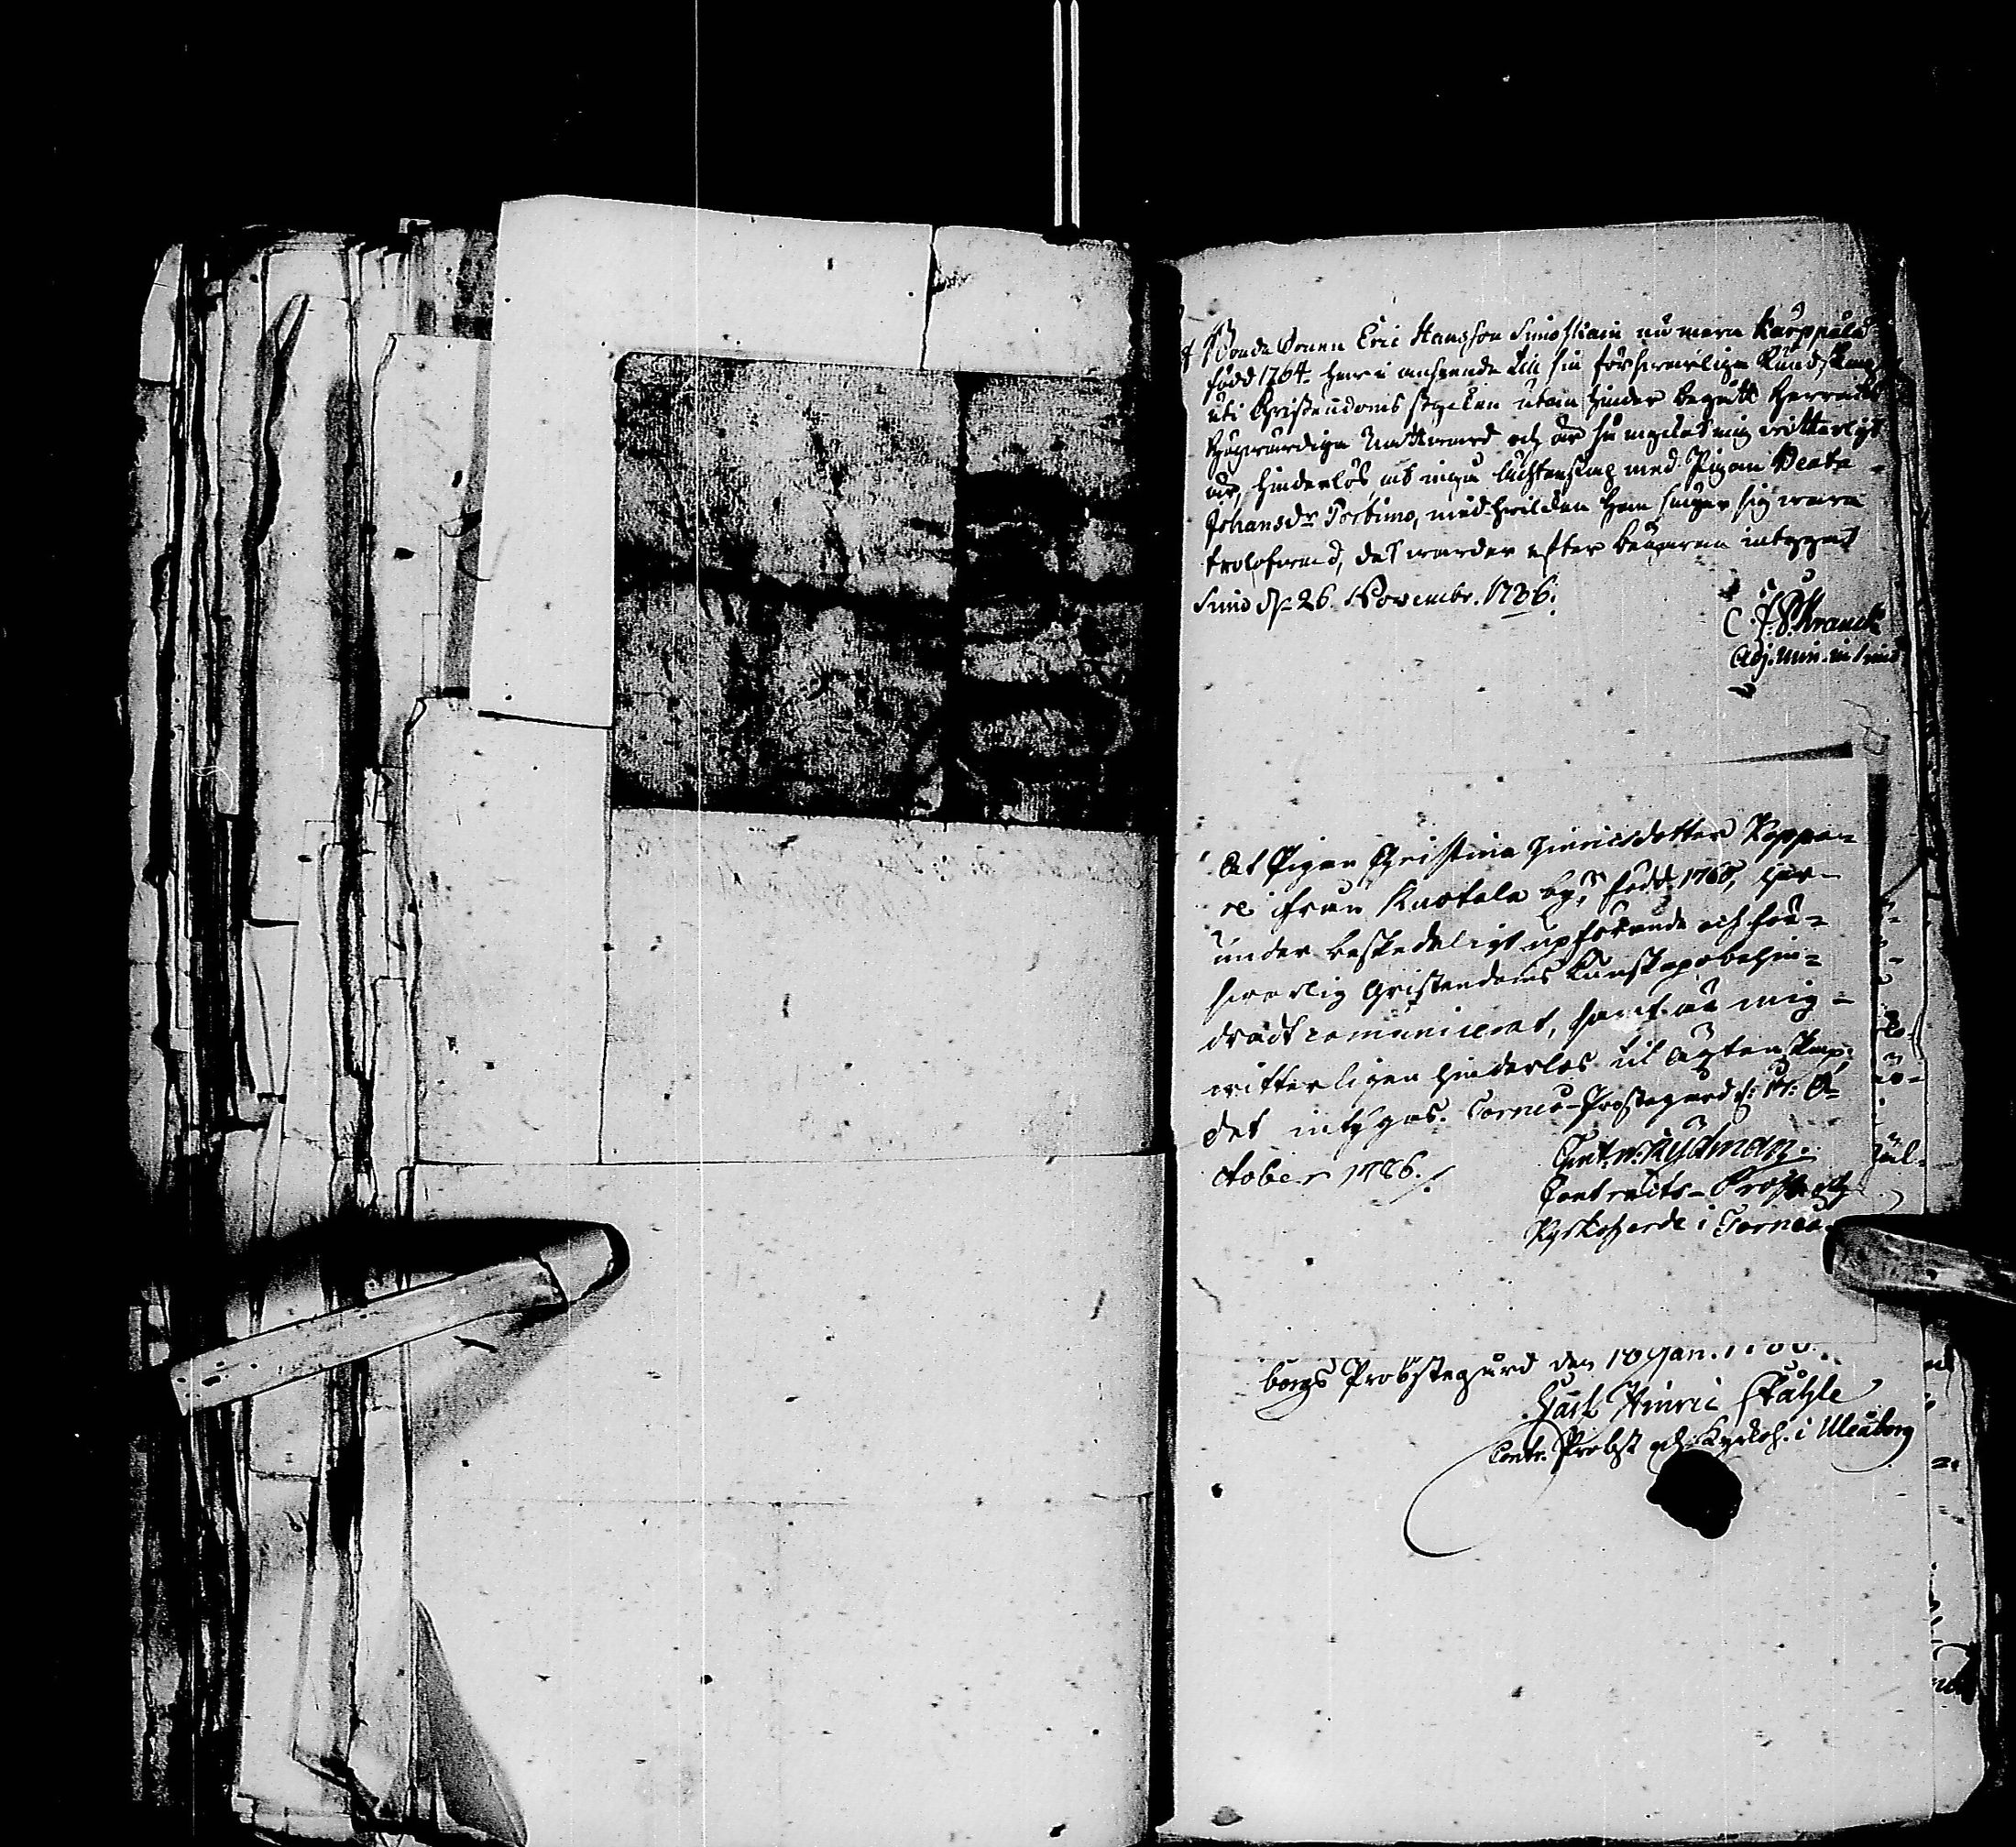 Bonde Sonen Eric Hansson Simoskain nu mera Karppala
född 1764. har i anseende till sin försvarliga Kundskap
uti Christendoms stycken utan hinder begått Herrans
Högvärdiga Nattvard och är så mycket mig vitterligt
är, hinderlös at ingå ächtenskap med Pigan Beata
Johansdr Portimo, med hvilken han säger sig vara
trolofvad, det varder efter begäran intygat
Simo d. 26. Novembr. 1786.
C. J. P. Kranck
Adj. Min. in Simo
At Pigan Christina Hinricsdotter Koppe-
re ifrån Kuotala by, född 1768, har
under beskedeligt upförande och för-
svarlig Christendoms Kunskap obehin-
dradt communicerat, samt är mig
vitterligen hinderlös til ägtenskap;
det intygas. Torneå Prostegård d. 17. O-
ctober 1786.
Contracts-Prost och
Kyrkoherde i Torneå.
borgs Probstegård den 18 Jan.
Hinric Ståhle
Contr. Probst och Kyrkoh. i Uleåborg